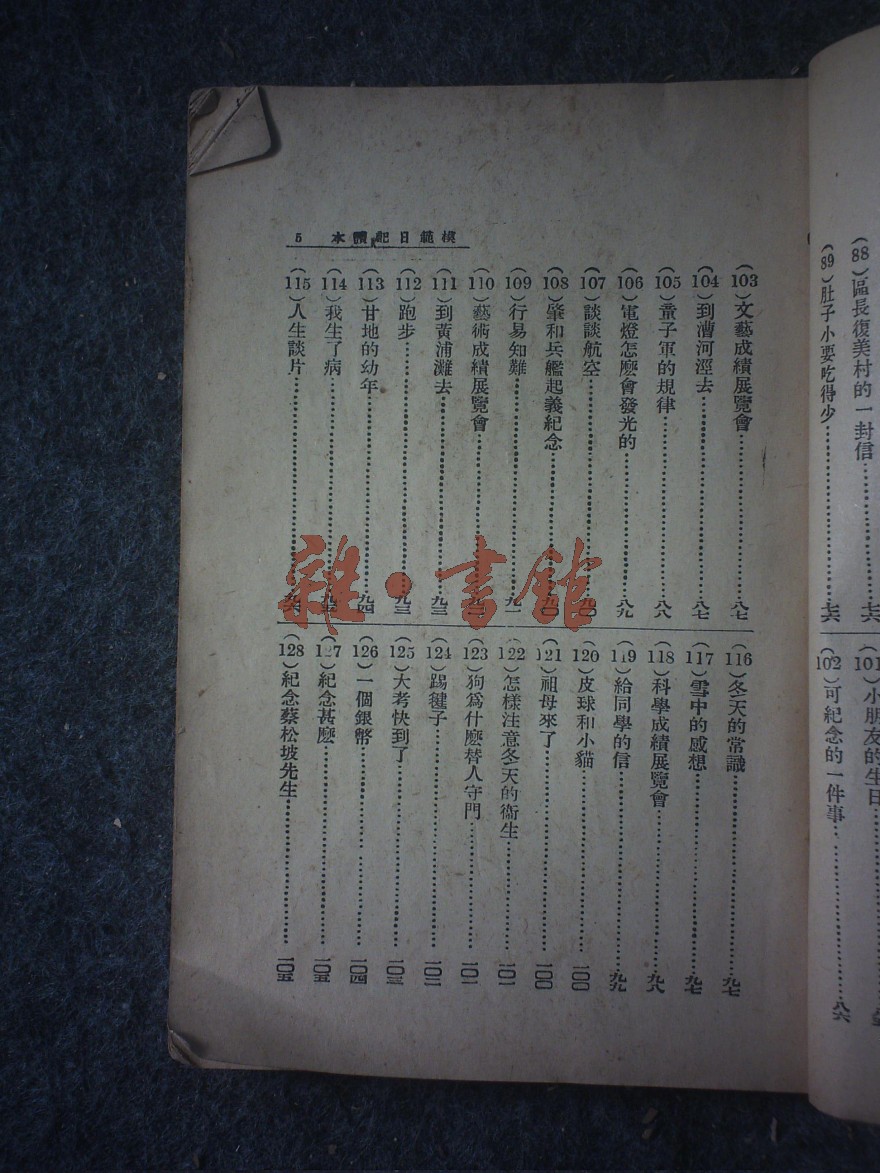 5 本讀記日範模
(103)文藝成績展覽會………八七
(104)到漕河涇去………八七
(105)童子軍的規律………八八
(106)電燈怎麽會發光的………八九
(107)談談航空………九〇
(108)肇和兵艦起義紀念………九〇
(109)行易知難………九一
(110)藝術成績展覽會………
(111)到黃浦灘去………九三
(112)跑步………九三
(113)甘地的幼年………九四
(114)我生了病………九五
(115)人生談片………九六
(116)冬天的常識………九七
(117)雪中的感想………九七
(118)科學成績展覽會………九八
(119)給同學的信………九九
(120)皮球和小貓………一〇〇
(121)祖母來了………一〇〇
(122)怎樣注意冬天的衞生………一〇一
(123)狗爲什麽替人守門………一〇一
(124)踢毽子………一〇二
(125)大考快到了………一〇三
(126)一個銀幣………一〇四
(127)紀念甚麽………一〇五
(128)紀念蔡松坡先生………一〇五
(88)區長復美村的一封信………七六
(89)肚子小要吃得少………七六
(101)小朋友的生日………
(102)可紀念的一件事………八六
雜·書館